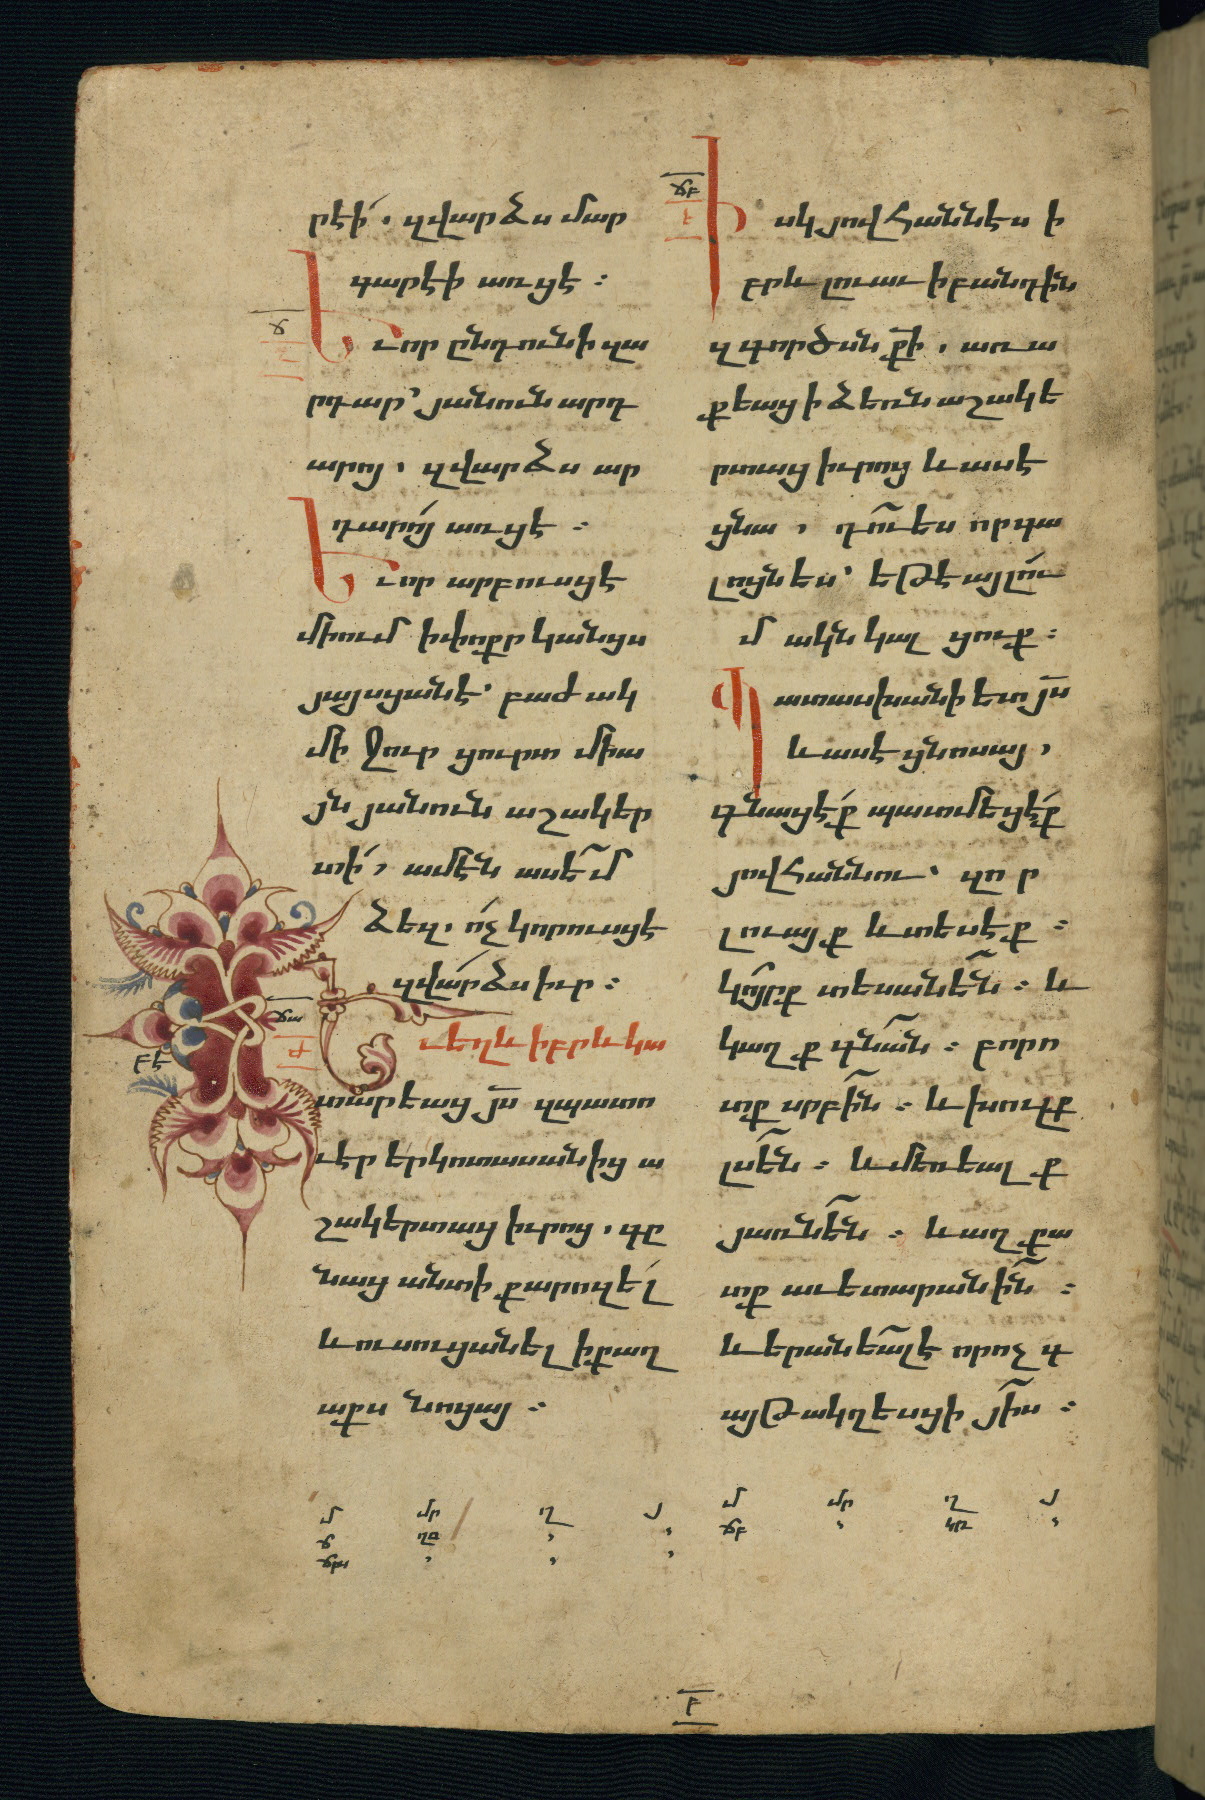 րէի՛, զվարձս մար
գարէի առցէ։
ւոր ընդունի զա
րդար՝ յանուն արդ
արոյ, զվարձս ար
դարո՛յ առցէ։
ւոր արբուսցէ
միում ի փոքր կանցս
յայսցանէ՝ բաժակ
մի ջուր ցուրտ միա
յն յանուն աշակեր
տի՛, ամէն ասե՜մ
ձեզ. ո՛չ կորուսցէ
զվա՛րձս իւր։
ւ եղև իբրև կա
տարեաց յս զպատո
ւէր երկոտասանից ա
շակերտաց իւրոց, գը
նաց անտի քարոզե՛լ
և ուսուցանել ի քաղ
աքս նոցայ։
Իսկ յովհաննէս ի
բրև լուաւ ի բանդին
զգործսն քի, առա
քեաց ի ձեռն աշակե
րտաց իւրոց և ասէ
ցնա, դո՞ւ ես որ գա
լոցն ես՝ եթէ այլո՛ւ
մ ակն կալ ցուք։
Պատասխանի ետ յս
և ասէ ցնոսայ,
գնացէ՛ք պատմեցէ՛ք
յովհաննու՝ զո ր
լուայք և տեսէք։
կո՜յրք տեսանե՜ն։ և
կաղք գնա՜ն։ բորո
տք սրբի՜ն։ և խուլք
լսե՜ն։ և մեռեալ ք
յառնե՜ն։ և աղքա
տք աւետարանի՜ն։
և երանեա՜լ է որ ոչ գ
այթակղեսցի յիս։
ճ
ճա
ճբ
բէ
մ մր ղ յ
ճ
ճա
մ մր ղ յ
ճբ
բ